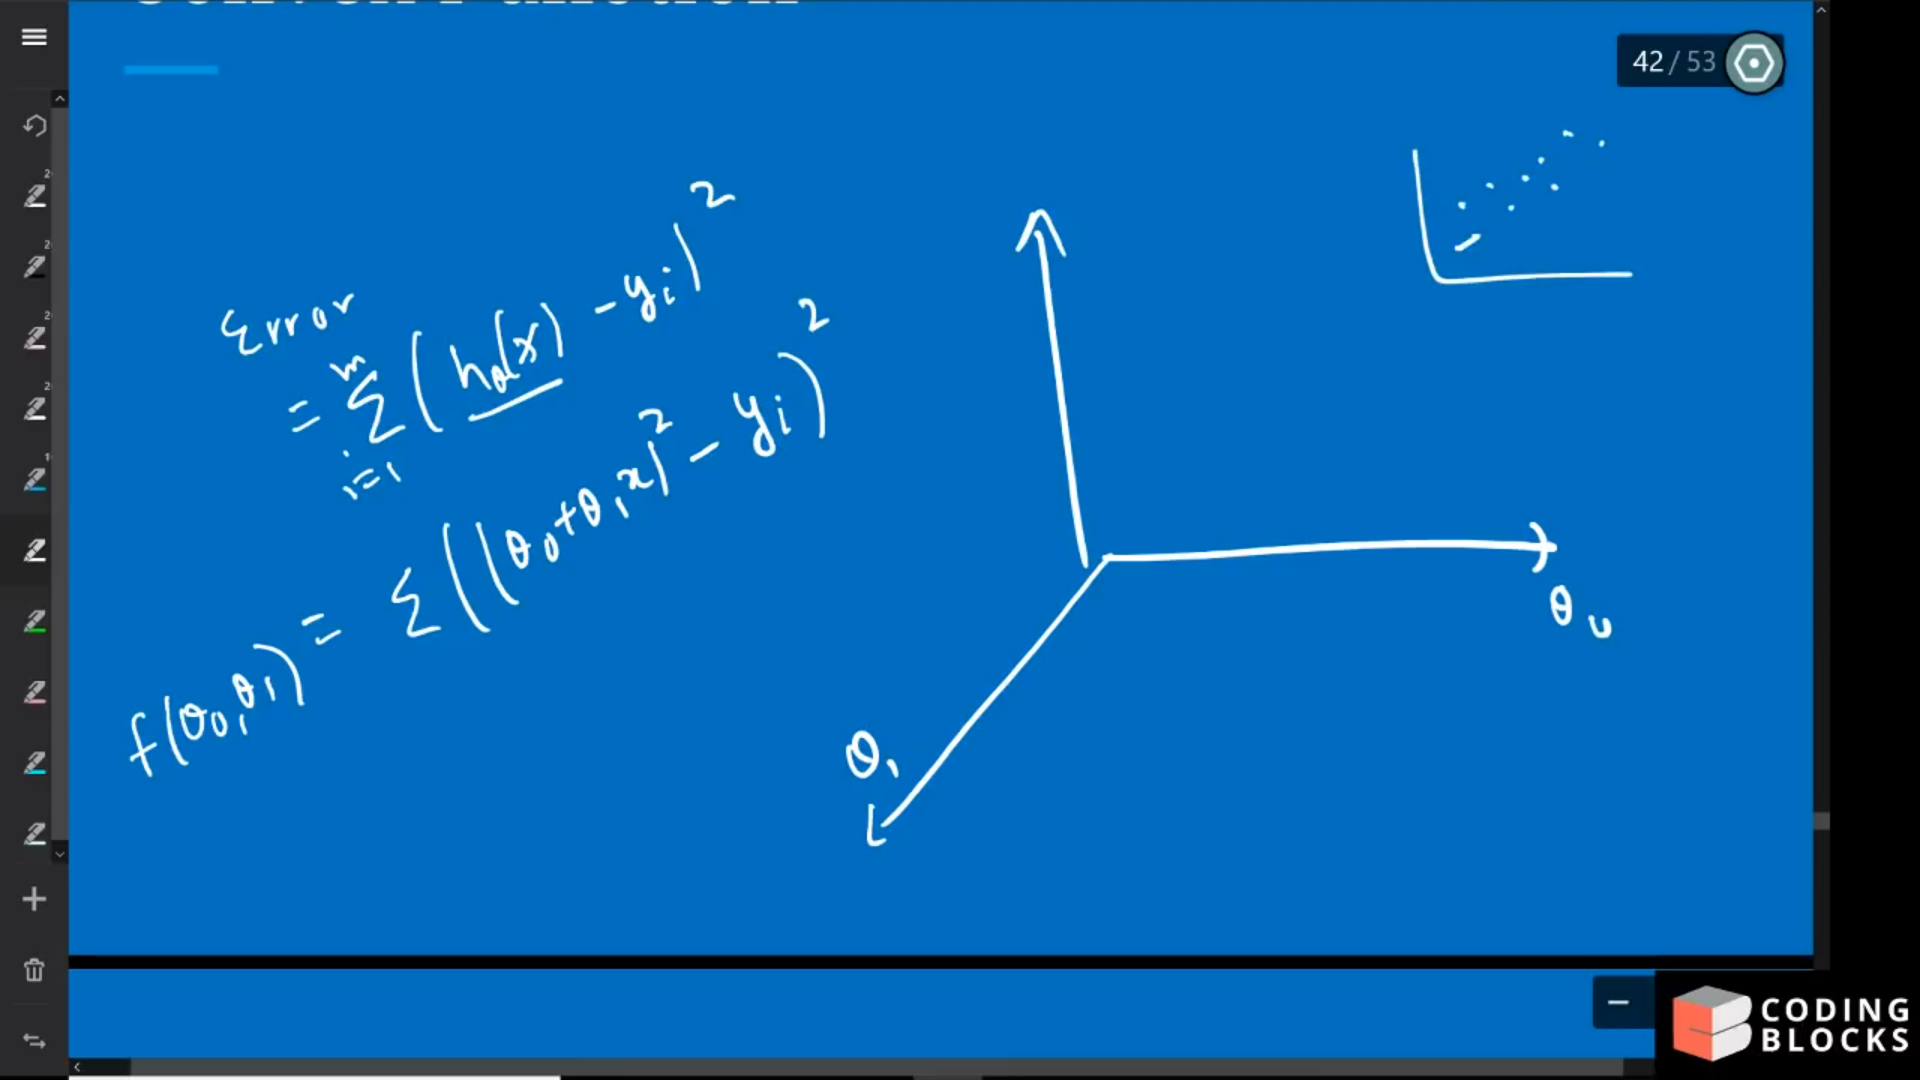 42 / 53
Error
= m Σ i=1 ( hθ(x) - yi )²
f(θ0, θ1) = Σ ( (θ0 + θ1 x)² - yi )²
θ0
θ1
CODING
BLOCKS